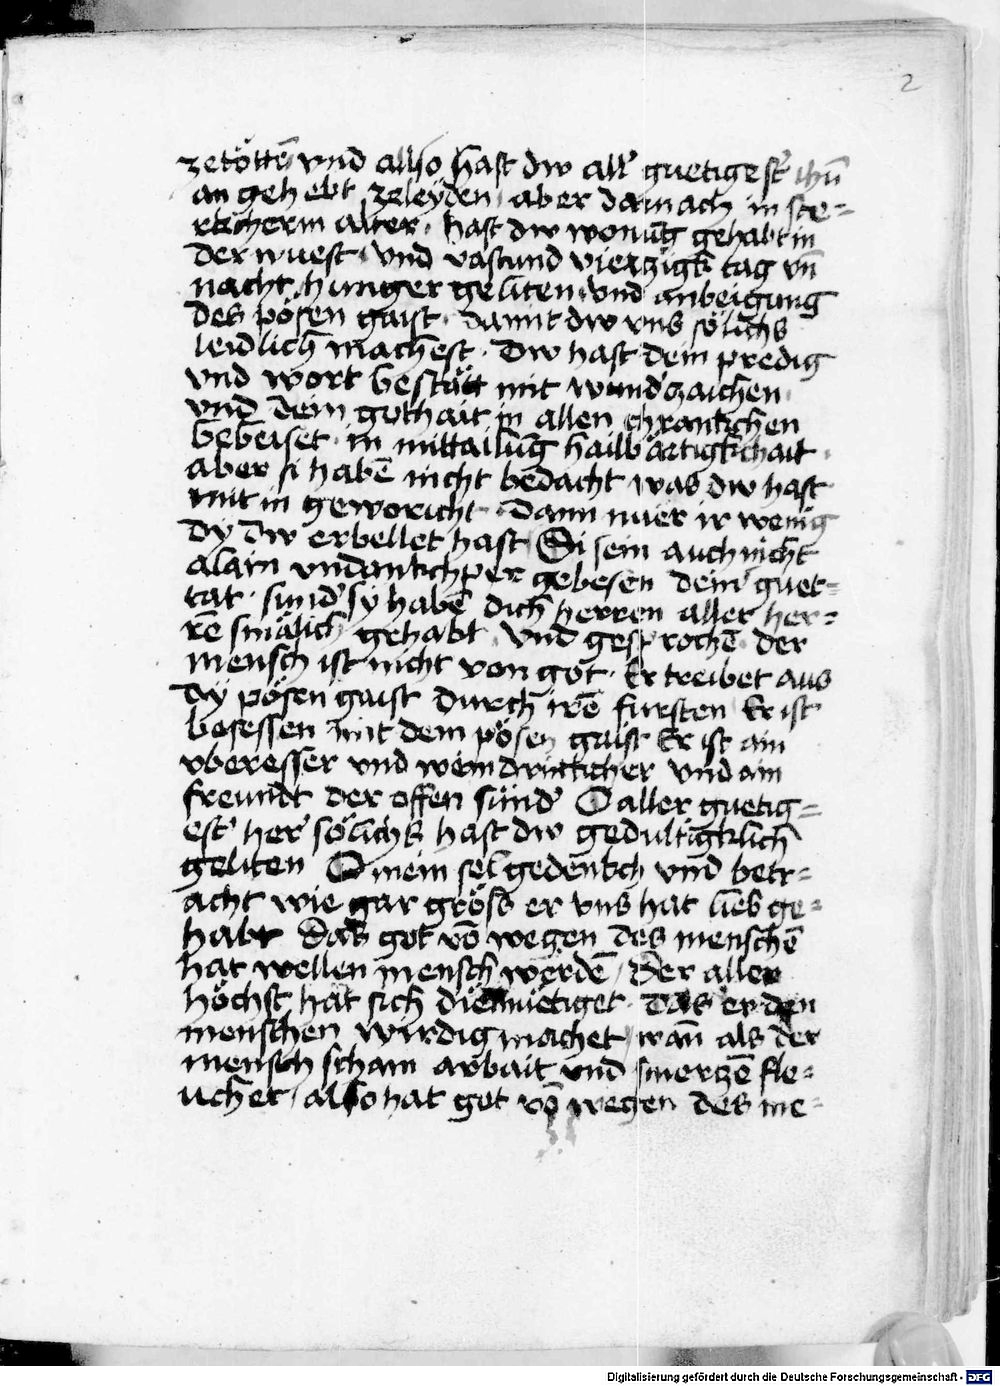 2
zetöttē vnd allso hast dw all' guetigest' ihū
an gehebt zeleyden, aber darnach in ste=
rkcherm alter. hast dw wonūg gehabt in
der wuest. vnd vastund vierzigk tag vn̄
nacht, hunger geliten. vnd anbeigung
des pösen gaist. damit dw vns sölichs
leidlich machest. Dw hast dein predig
vnd wort bestätt mit wund'zaichen.
vnd dein gothait in allen chrankchen
bebeiset. in mittailūg hailbärtigkchait.
aber si habē nicht bedacht was dw hast
mit in geworicht. Dann nuer ir wenig
dy dw erbellet hast Si sein auch nicht
alain vndankchper gebesen dein' guet=
tat. sund' sy habē dich herren aller her=
rē smälich gehabt. vnd gesprochē. der
mensch ist nicht von got. Er treibet aus
dy pösen gaist durch irē fürsten Er ist
besessen mit dem pösen gaist Er ist ain
vberesser vnd wein drinkcher vnd ain
freundt der offen sünd' O aller guetig=
est' her' sölichs hast dw gedultigklich
geliten O mein sel gedenkch vnd betr=
acht wie gar gröss er vns hat lieb ge=
habt das got vō wegen des menschē
hat wellen mensch werdē, Der aller
höchst hat sich diemüetiget. Das er den
menschen wirdig machet, wan̄ als der
mensch scham arbait vnd smerzē fle=
ucher, also hat got vō wegen des me=
Digitalisierung gefördert durch die Deutsche Forschungsgemeinschaft - DFG